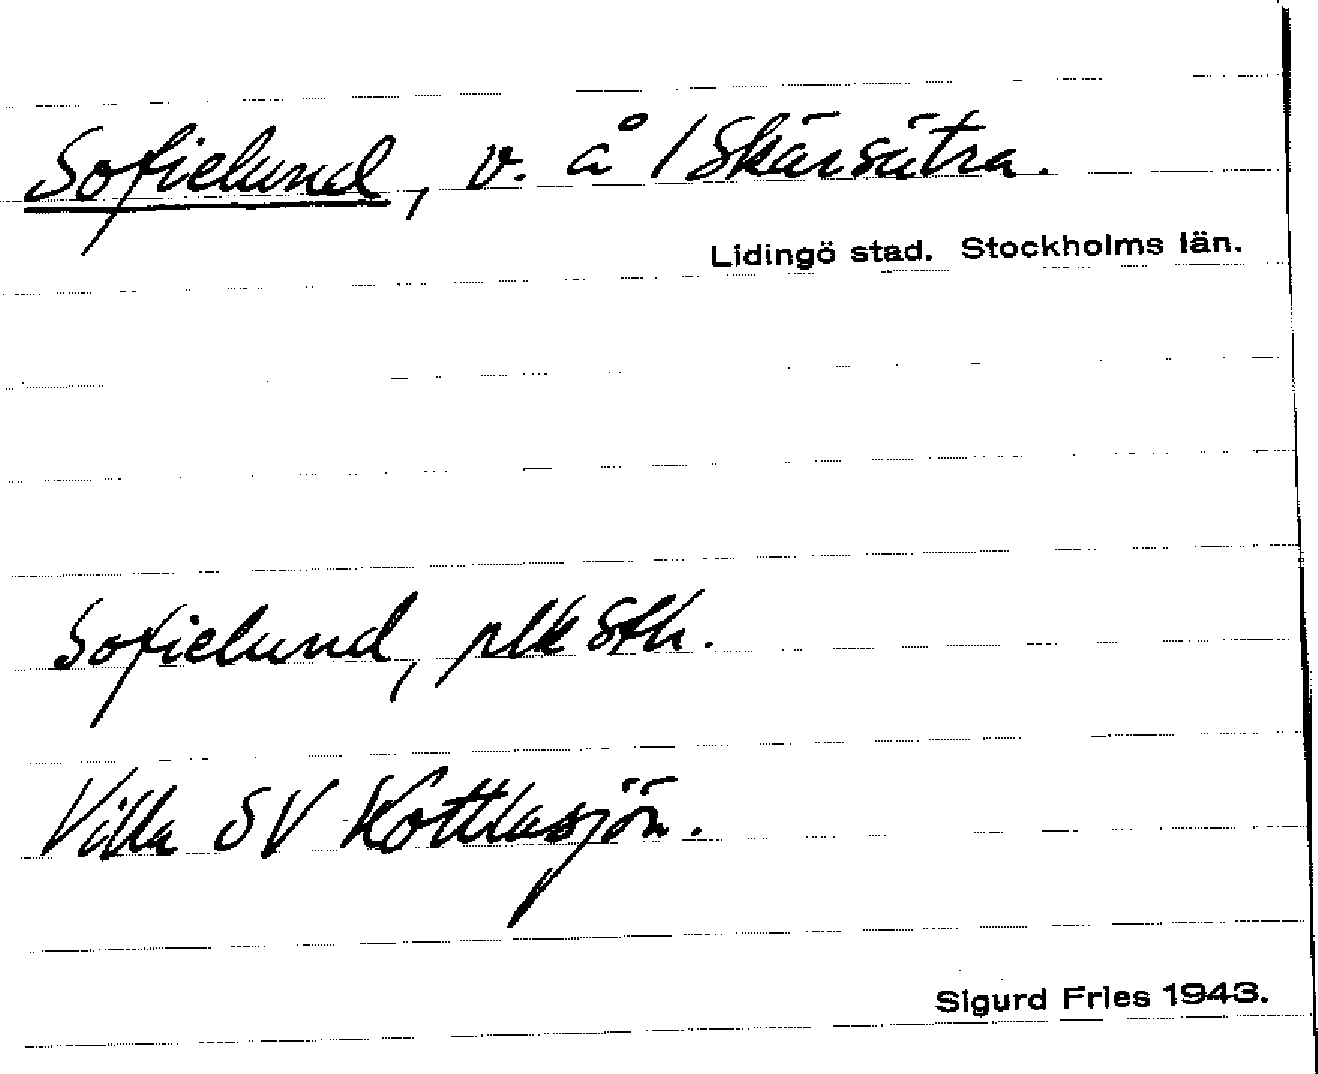 Sofielund, v. å /Skärsätra.
Lidingö stad. Stockholms län.
Sofielund, plk Sth.
Villa SV Kottlasjön.
Sigurd Fries 1943.